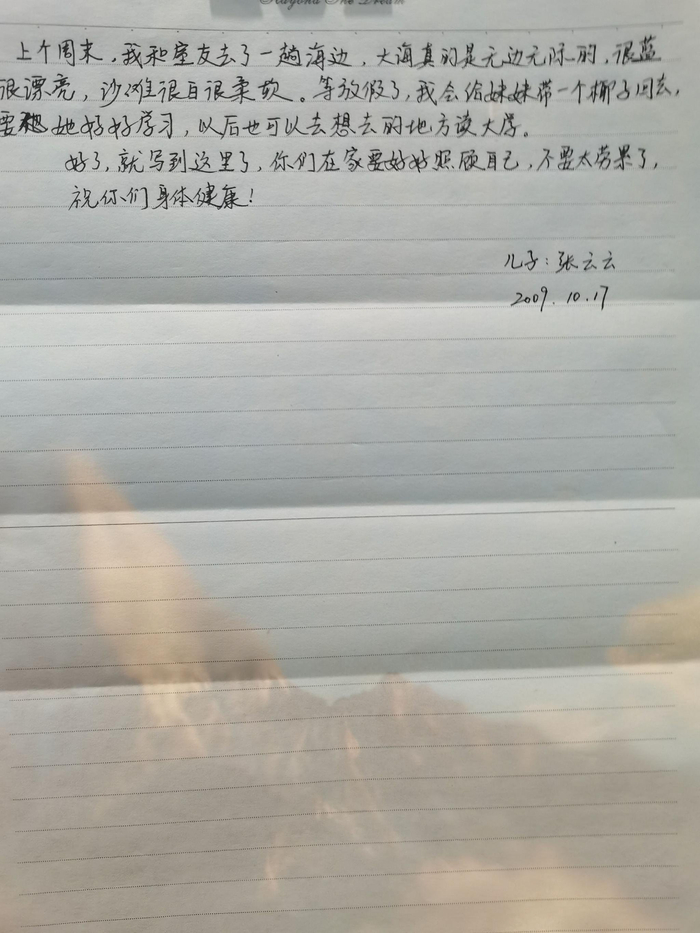 Beyond The Dream
上个周末，我和室友去了一趟海边，大海真的是无边无际的，很蓝
很漂亮，沙滩很白很柔软。等放假了，我会给妹妹带一个椰子回去，
要她好好学习，以后也可以去想去的地方读大学。
好了，就写到这里了，你们在家要好好照顾自己，不要太劳累了，
祝你们身体健康！
儿子：张云云
2009.10.17